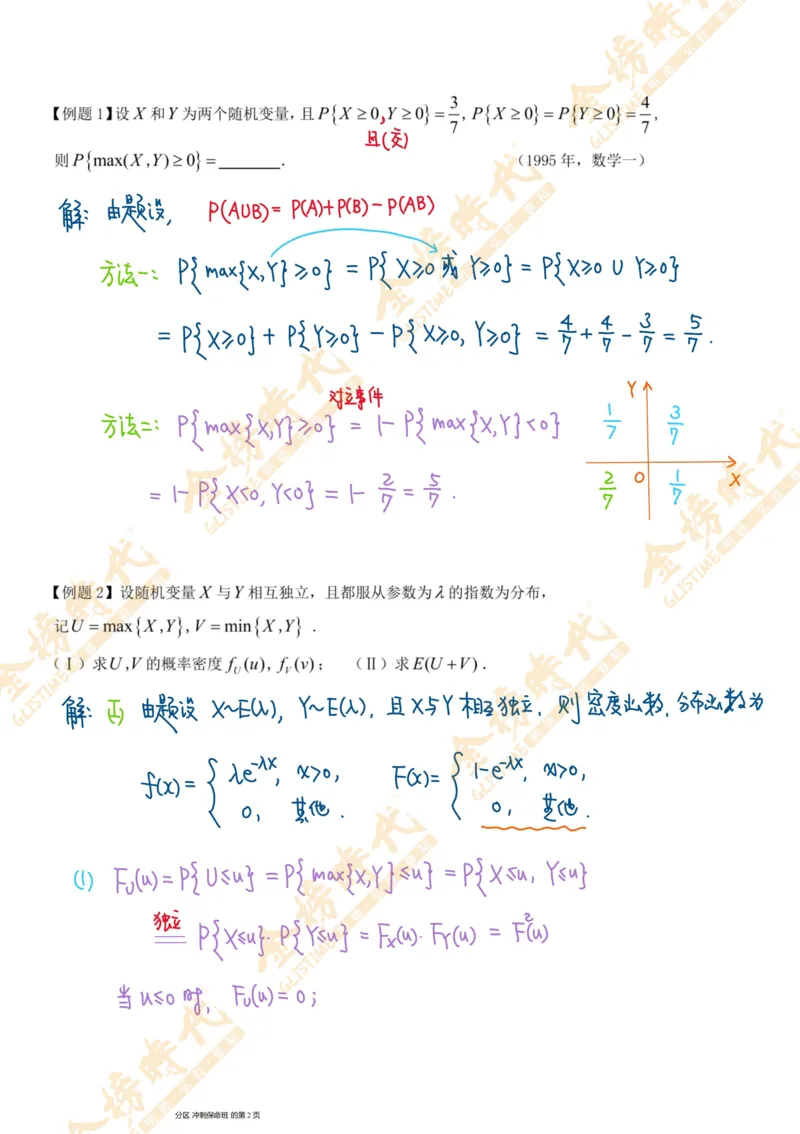 【例题1】设X和Y为两个随机变量,且P{X≥0,Y≥0}=3/7, P{X≥0}=P{Y≥0}=4/7,
且(交)
则P{max(X,Y)≥0}=_______. (1995年,数学一)
解: 由题设, P(A∪B)=P(A)+P(B)-P(AB)
方法一: P{max{X,Y}≥0} = P{X≥0 或 Y≥0} = P{X≥0 ∪ Y≥0}
= P{X≥0} + P{Y≥0} - P{X≥0, Y≥0} = 4/7 + 4/7 - 3/7 = 5/7.
对立事件
方法二: P{max{X,Y}≥0} = 1-P{max{X,Y}<0}
= 1-P{X<0, Y<0} = 1- 2/7 = 5/7.
Y
1/7 3/7
2/7 0 1/7 X
【例题2】设随机变量X与Y相互独立,且都服从参数为λ的指数为分布,
记U=max{X,Y},V=min{X,Y} .
(Ⅰ)求U,V的概率密度f_U(u), f_V(v); (Ⅱ)求E(U+V).
解: (Ⅰ) 由题设 X~E(λ), Y~E(λ), 且X与Y相互独立, 则密度函数,分布函数为
f(x)={λe^{-λx}, x>0, F(x)={1-e^{-λx}, x>0,
0, 其他. 0, 其他.
(1) F_U(u)=P{U≤u} =P{max{X,Y}≤u} =P{X≤u, Y≤u}
独立
= P{X≤u}·P{Y≤u} = F_X(u)·F_Y(u) = F²(u)
当u≤0时, F_U(u)=0;
分区 冲刺保命班 的第 2 页
金榜時代
GLISTIME